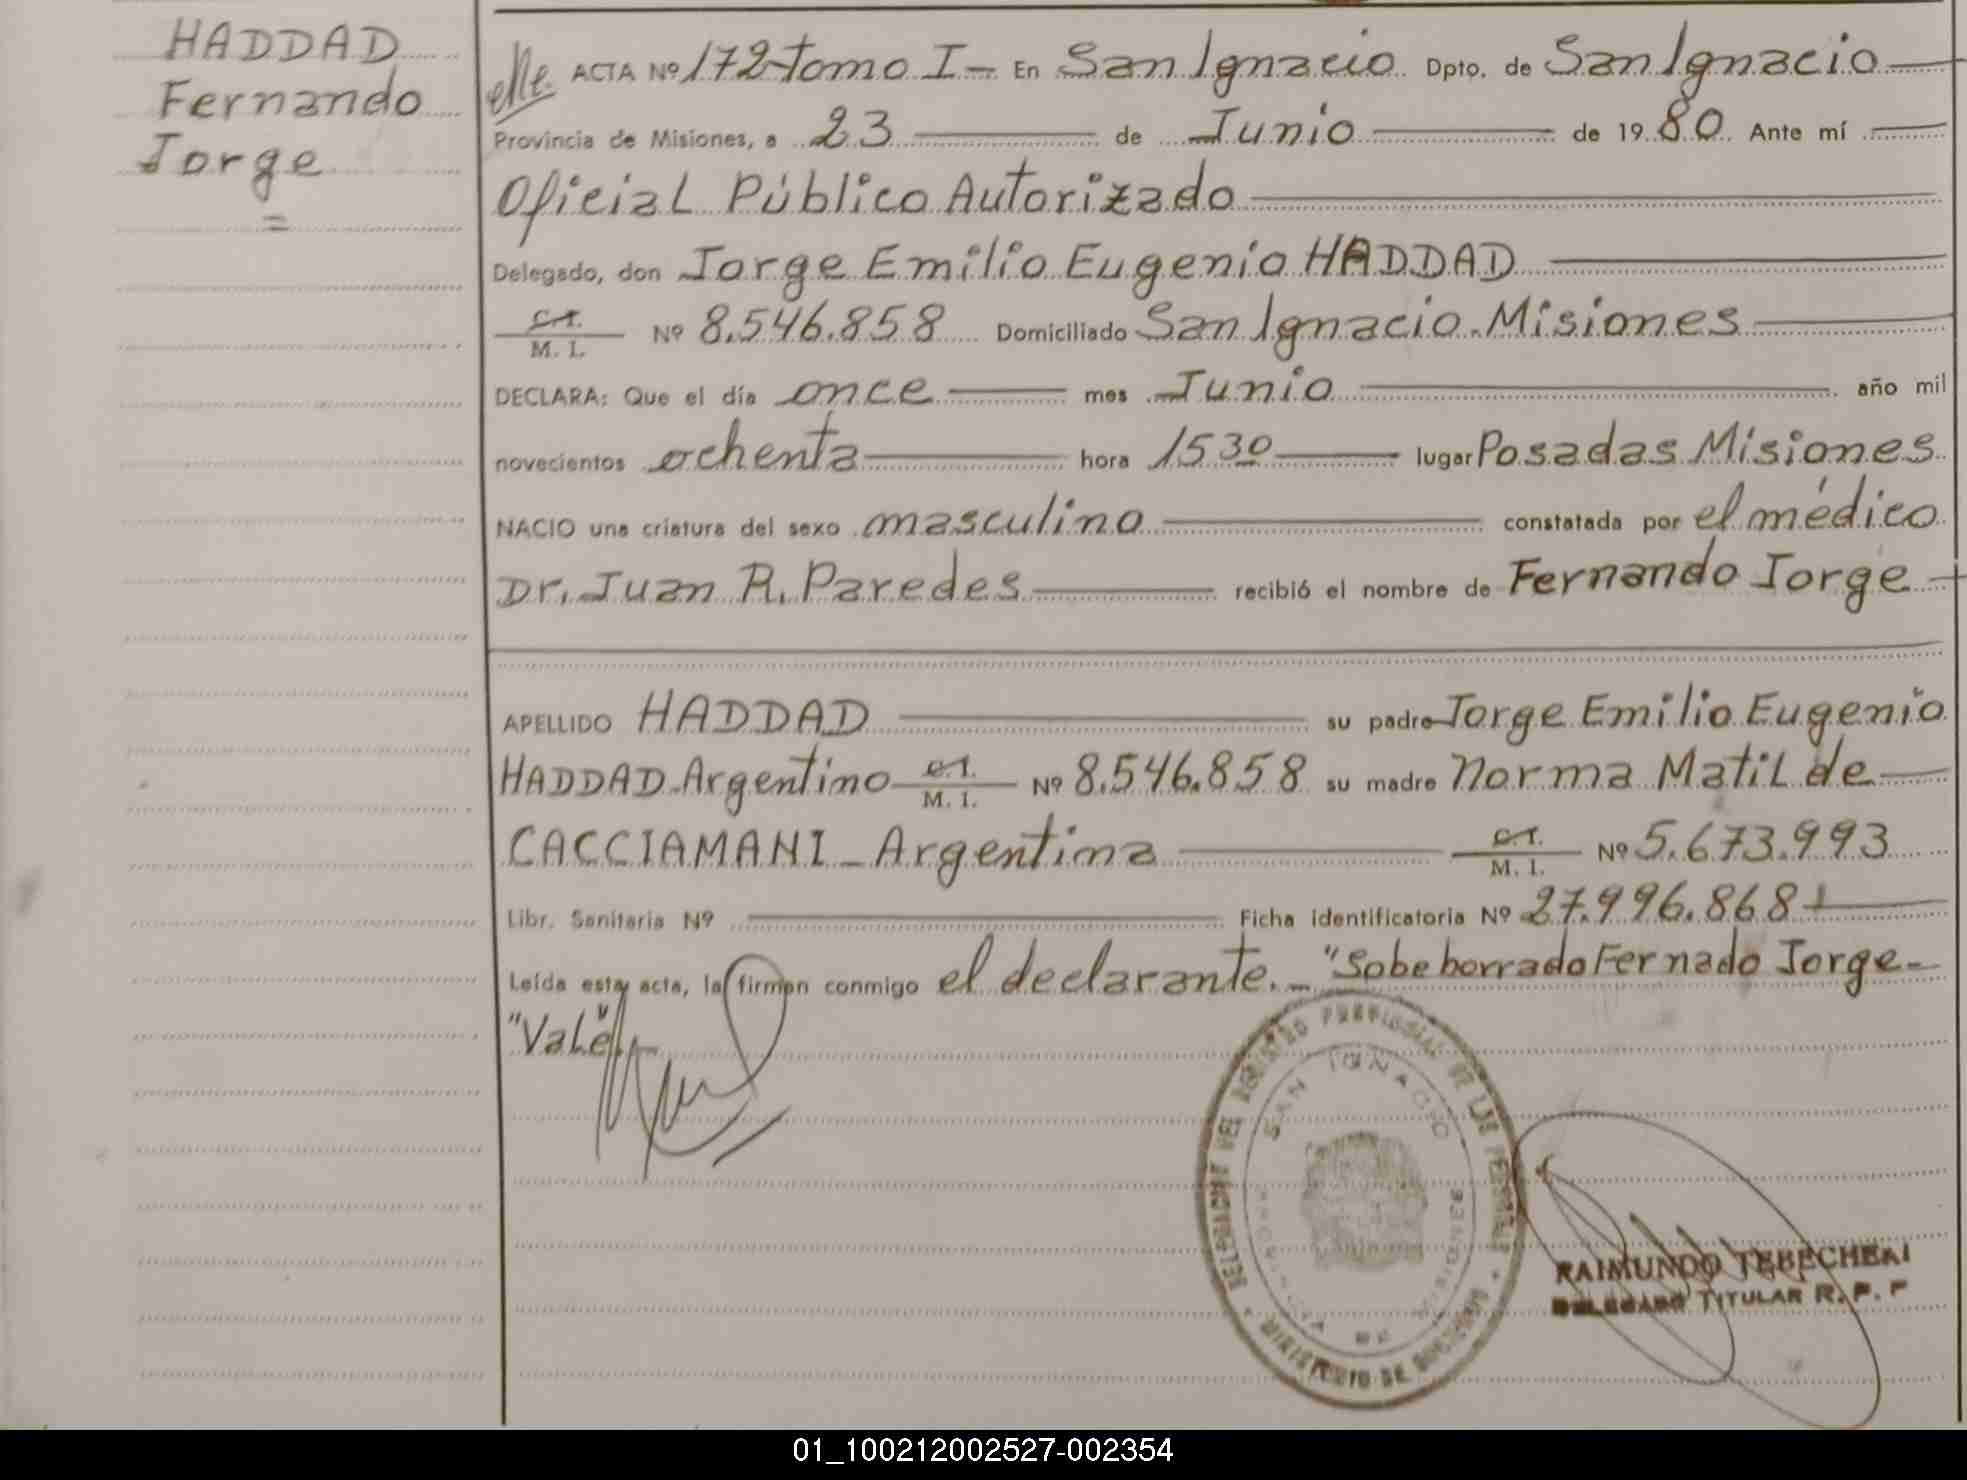 HADDAD
Fernando
Jorge
=
ACTA Nº 172 Tomo I - En San Ignacio Dpto. de San Ignacio
Provincia de Misiones, a 23 de Junio de 1980 Ante mí
Oficial Público Autorizado
Delegado, don Jorge Emilio Eugenio HADDAD
C.I.
M. I. Nº 8.546.858 Domiciliado San Ignacio. Misiones
DECLARA: Que el día once mes Junio año mil
novecientos ochenta hora 15 30 lugar Posadas Misiones
NACIO una criatura del sexo masculino constatada por el médico
Dr. Juan R. Paredes recibió el nombre de Fernando Jorge
APELLIDO HADDAD su padre Jorge Emilio Eugenio
HADDAD - Argentino C.I. M. I. Nº 8.546.858 su madre Norma Matilde
CACCIAMANI - Argentina C.I. M. I. Nº 5.673.993
Libr. Sanitaria Nº Ficha identificatoria Nº 27.996.868
Leída esta acta, la firman conmigo el declarante. - "Sobe borrado Fernado Jorge -
"Vale". -
DELEGACION DEL REGISTRO PROVINCIAL DE LAS PERSONAS
SAN IGNACIO
MISIONES
MINISTERIO DE GOBIERNO
RAIMUNDO TEBECHERI
DELEGADO TITULAR R. P. P
01_100212002527-002354